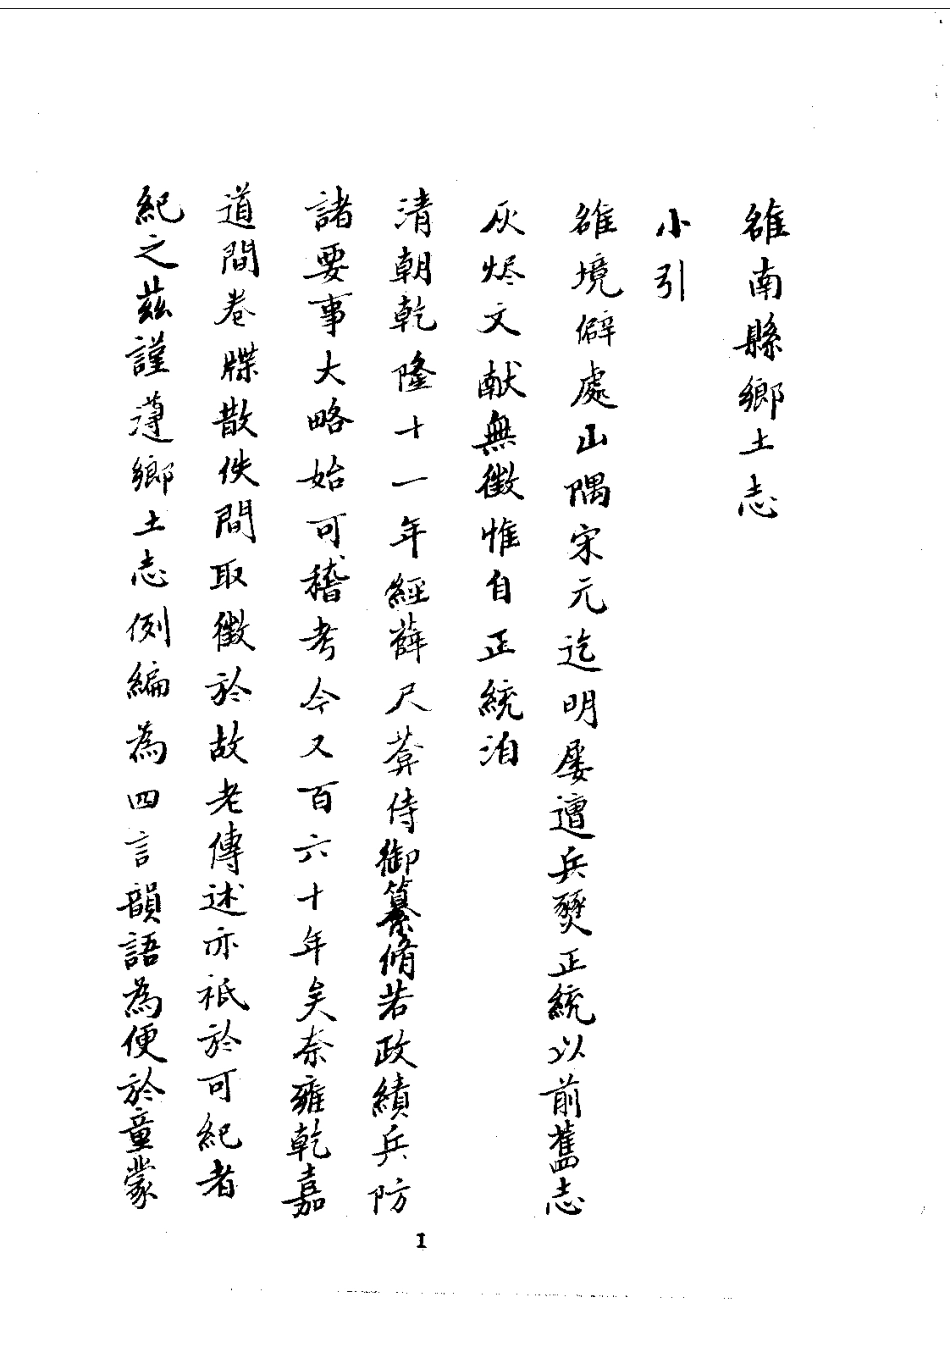 雒南縣鄉土志
小引
雒境僻處山隅宋元迄明屢遭兵燹正統以前舊志
灰烬文献無徵惟自正統洎
清朝乾隆十一年經薛尺莾侍御纂脩若政績兵防
諸要事大略始可稽考今又百六十年矣奈雍乾嘉
道間卷牒散佚間取徵於故老傳述亦祇於可紀者
紀之茲謹遵鄉土志例編為四言韻語為便於童蒙
1